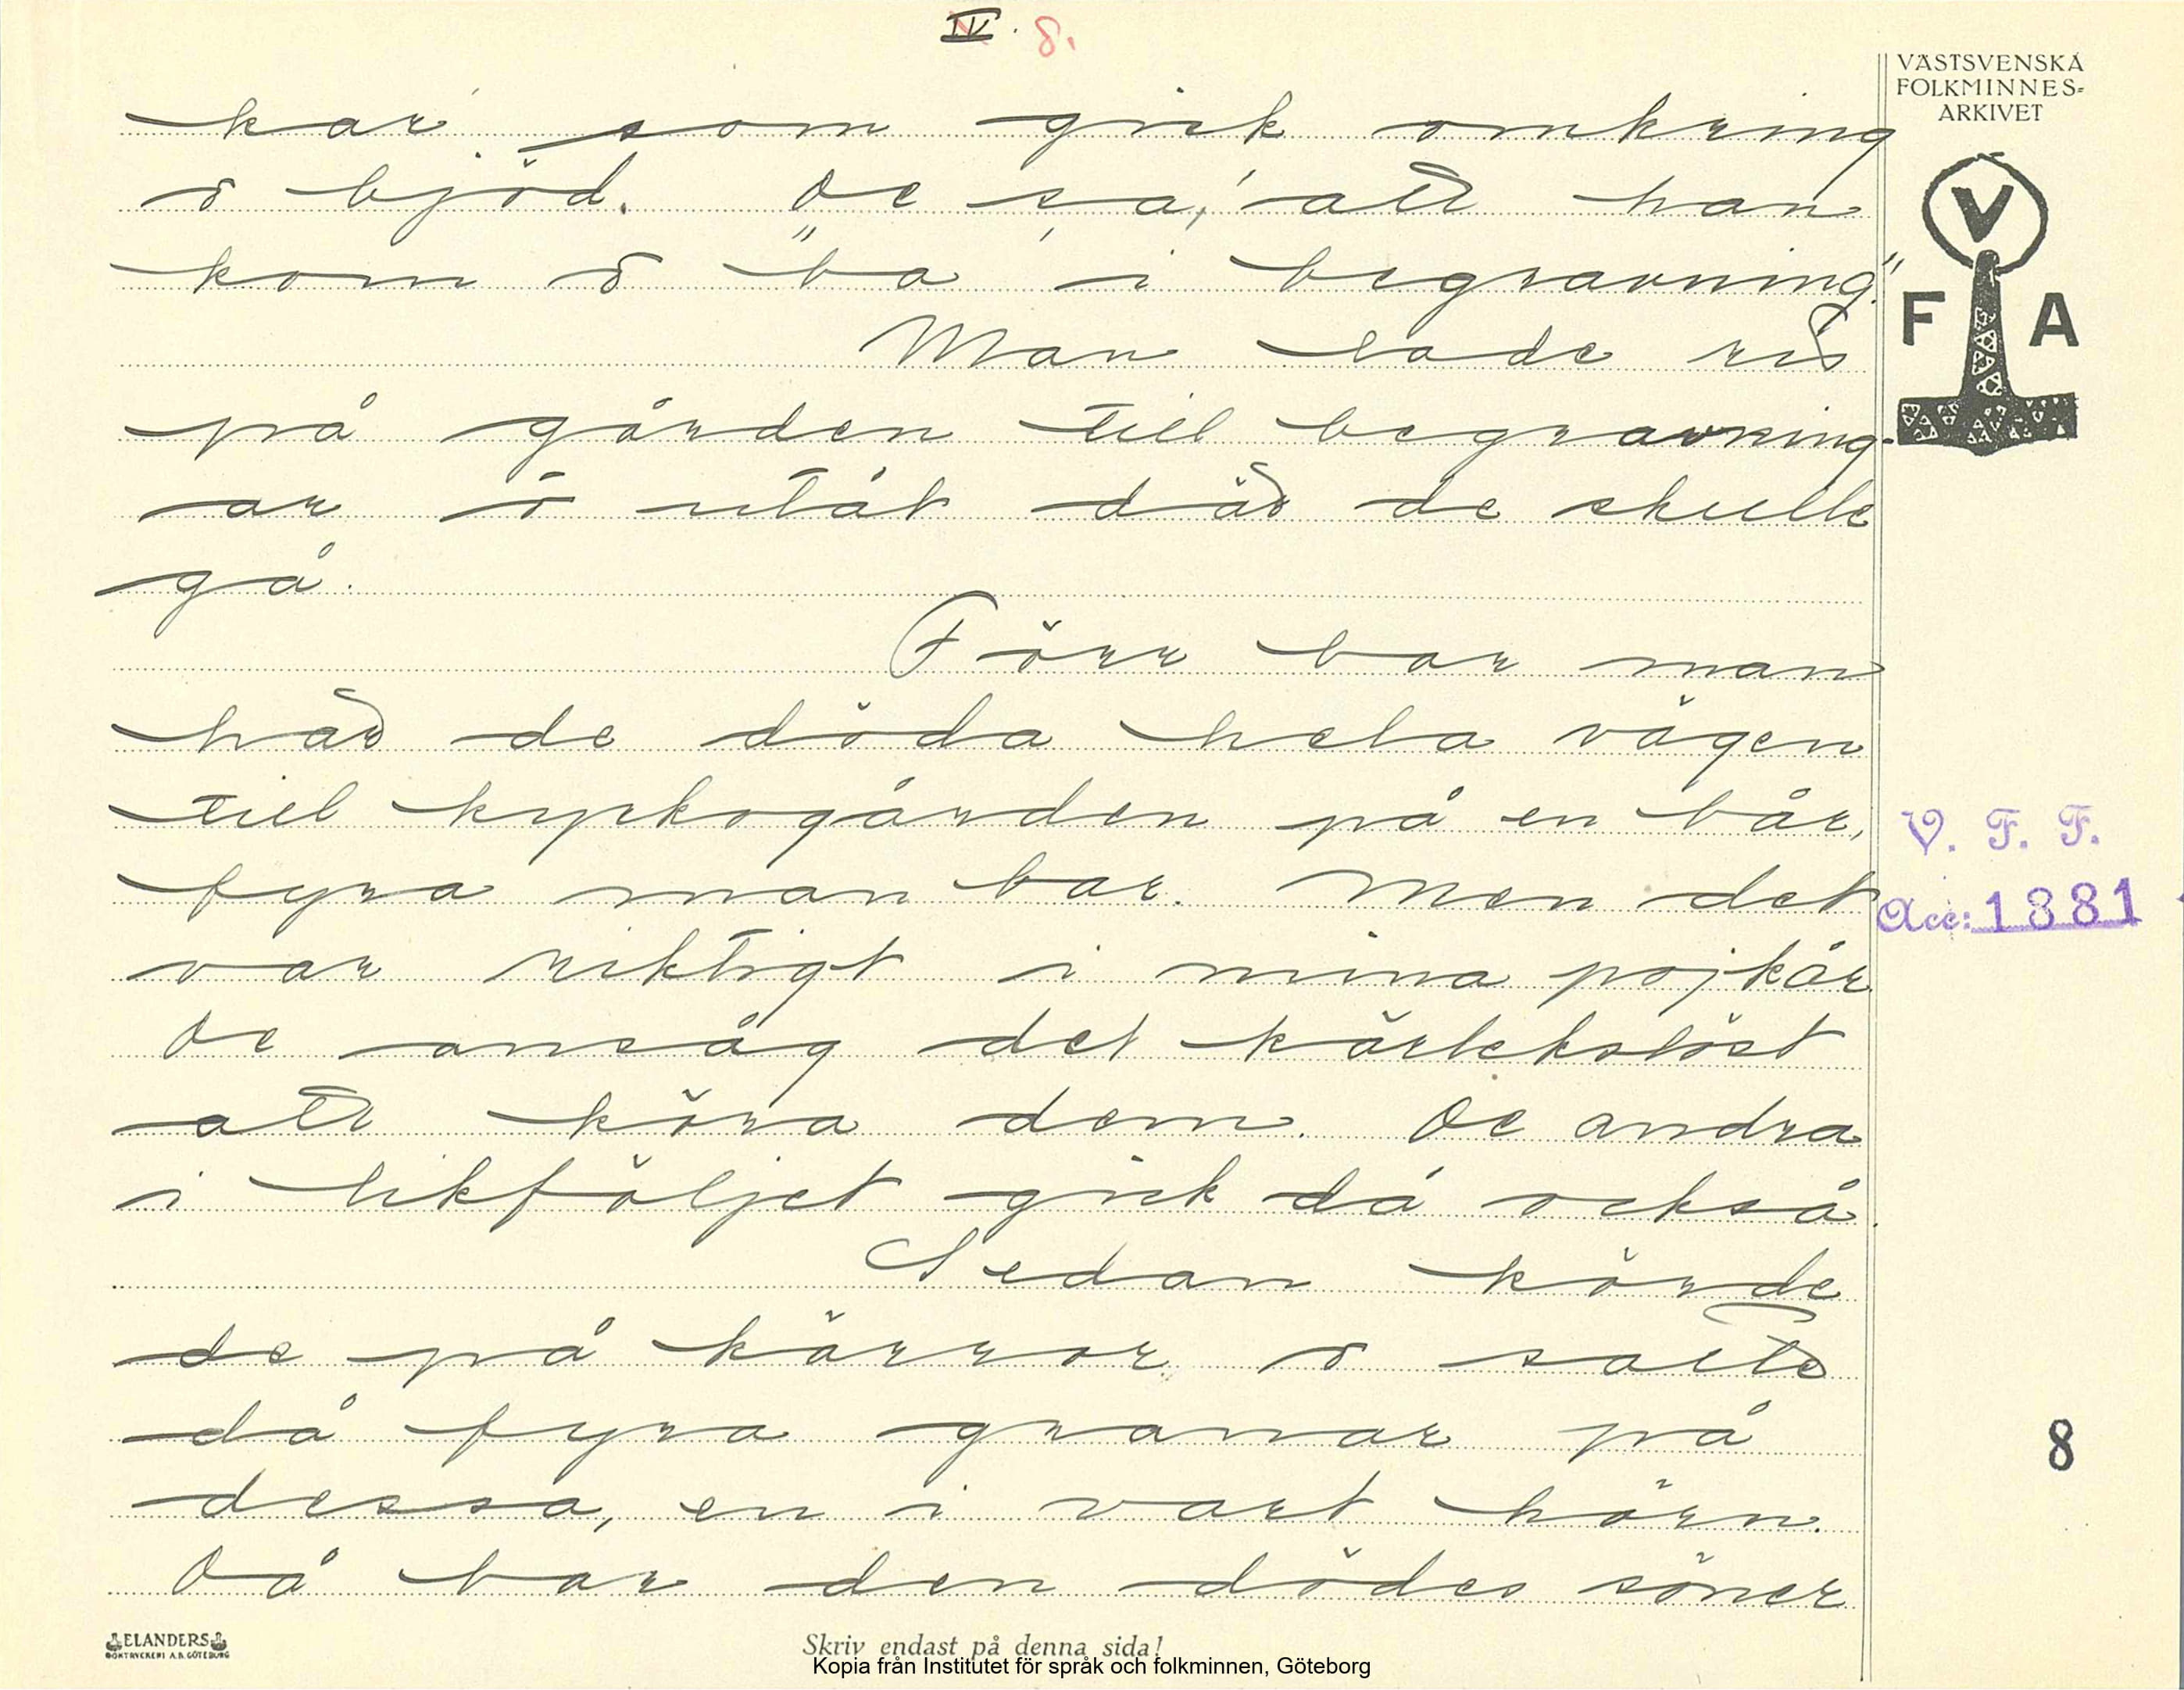 IV. 8.
VÄSTSVENSKA
FOLKMINNES=
ARKIVET
kar, som gick omkring
o bjöd. De sa, att han
kom o "ba i begravning".
V
F A
Man lade ris
på gården till begravning-
ar o utåt där de skulle
gå.
Förr bar man
här de döda hela vägen
till kyrkogården på en bår,
fyra man bar. Men det
V. F. F.
Acc: 1881
var riktigt i mina pojkår
De ansåg det kärlekslöst
att köra dem. De andra
i likföljet gick då också.
Sedan körde
de på kärror o satte
då fyra granar på
dessa, en i vart hörn.
8
Då bar den dödes söner
ELANDERS
BOKTRYCKERI A.B. GÖTEBORG
Skriv endast på denna sida!
Kopia från Institutet för språk och folkminnen, Göteborg